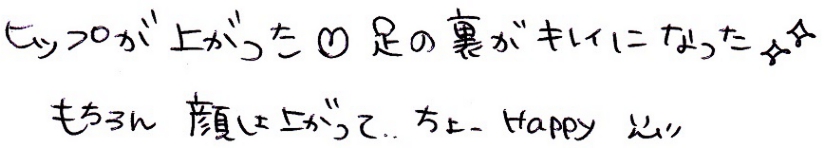 ヒップが上がった♡ 足の裏がキレイになった✧✧
もちろん 顔は上がって.. ちょー Happy ^^"